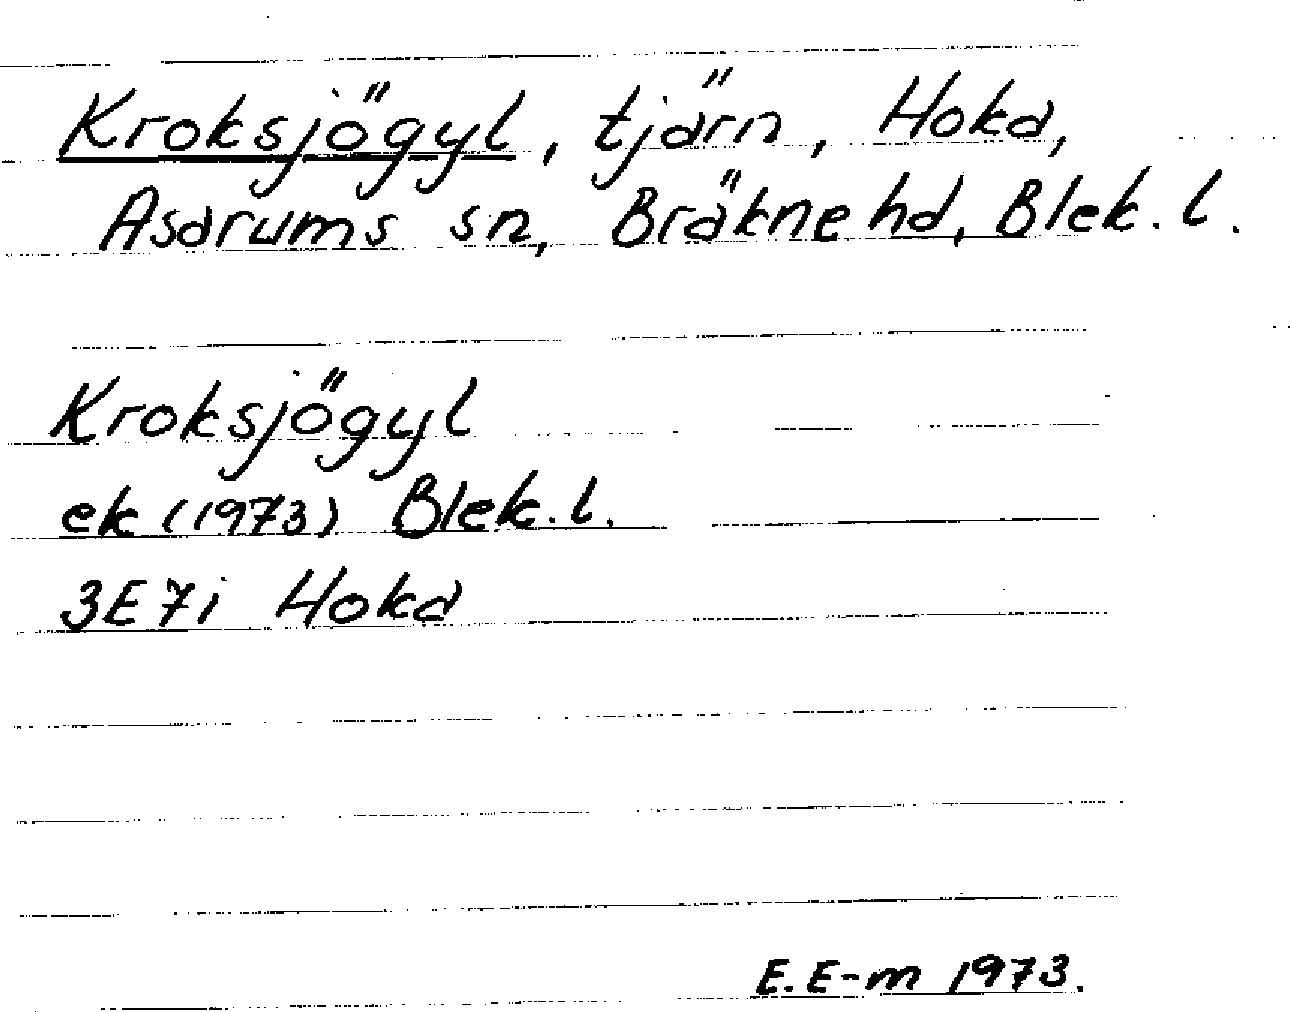 Kroksjögyl, tjärn, Hoka,
Asarums sn, Bräkne hd, Blek. l.
Kroksjögyl
ek (1973) Blek. l.
3E7i Hoka
E. E-m 1973.